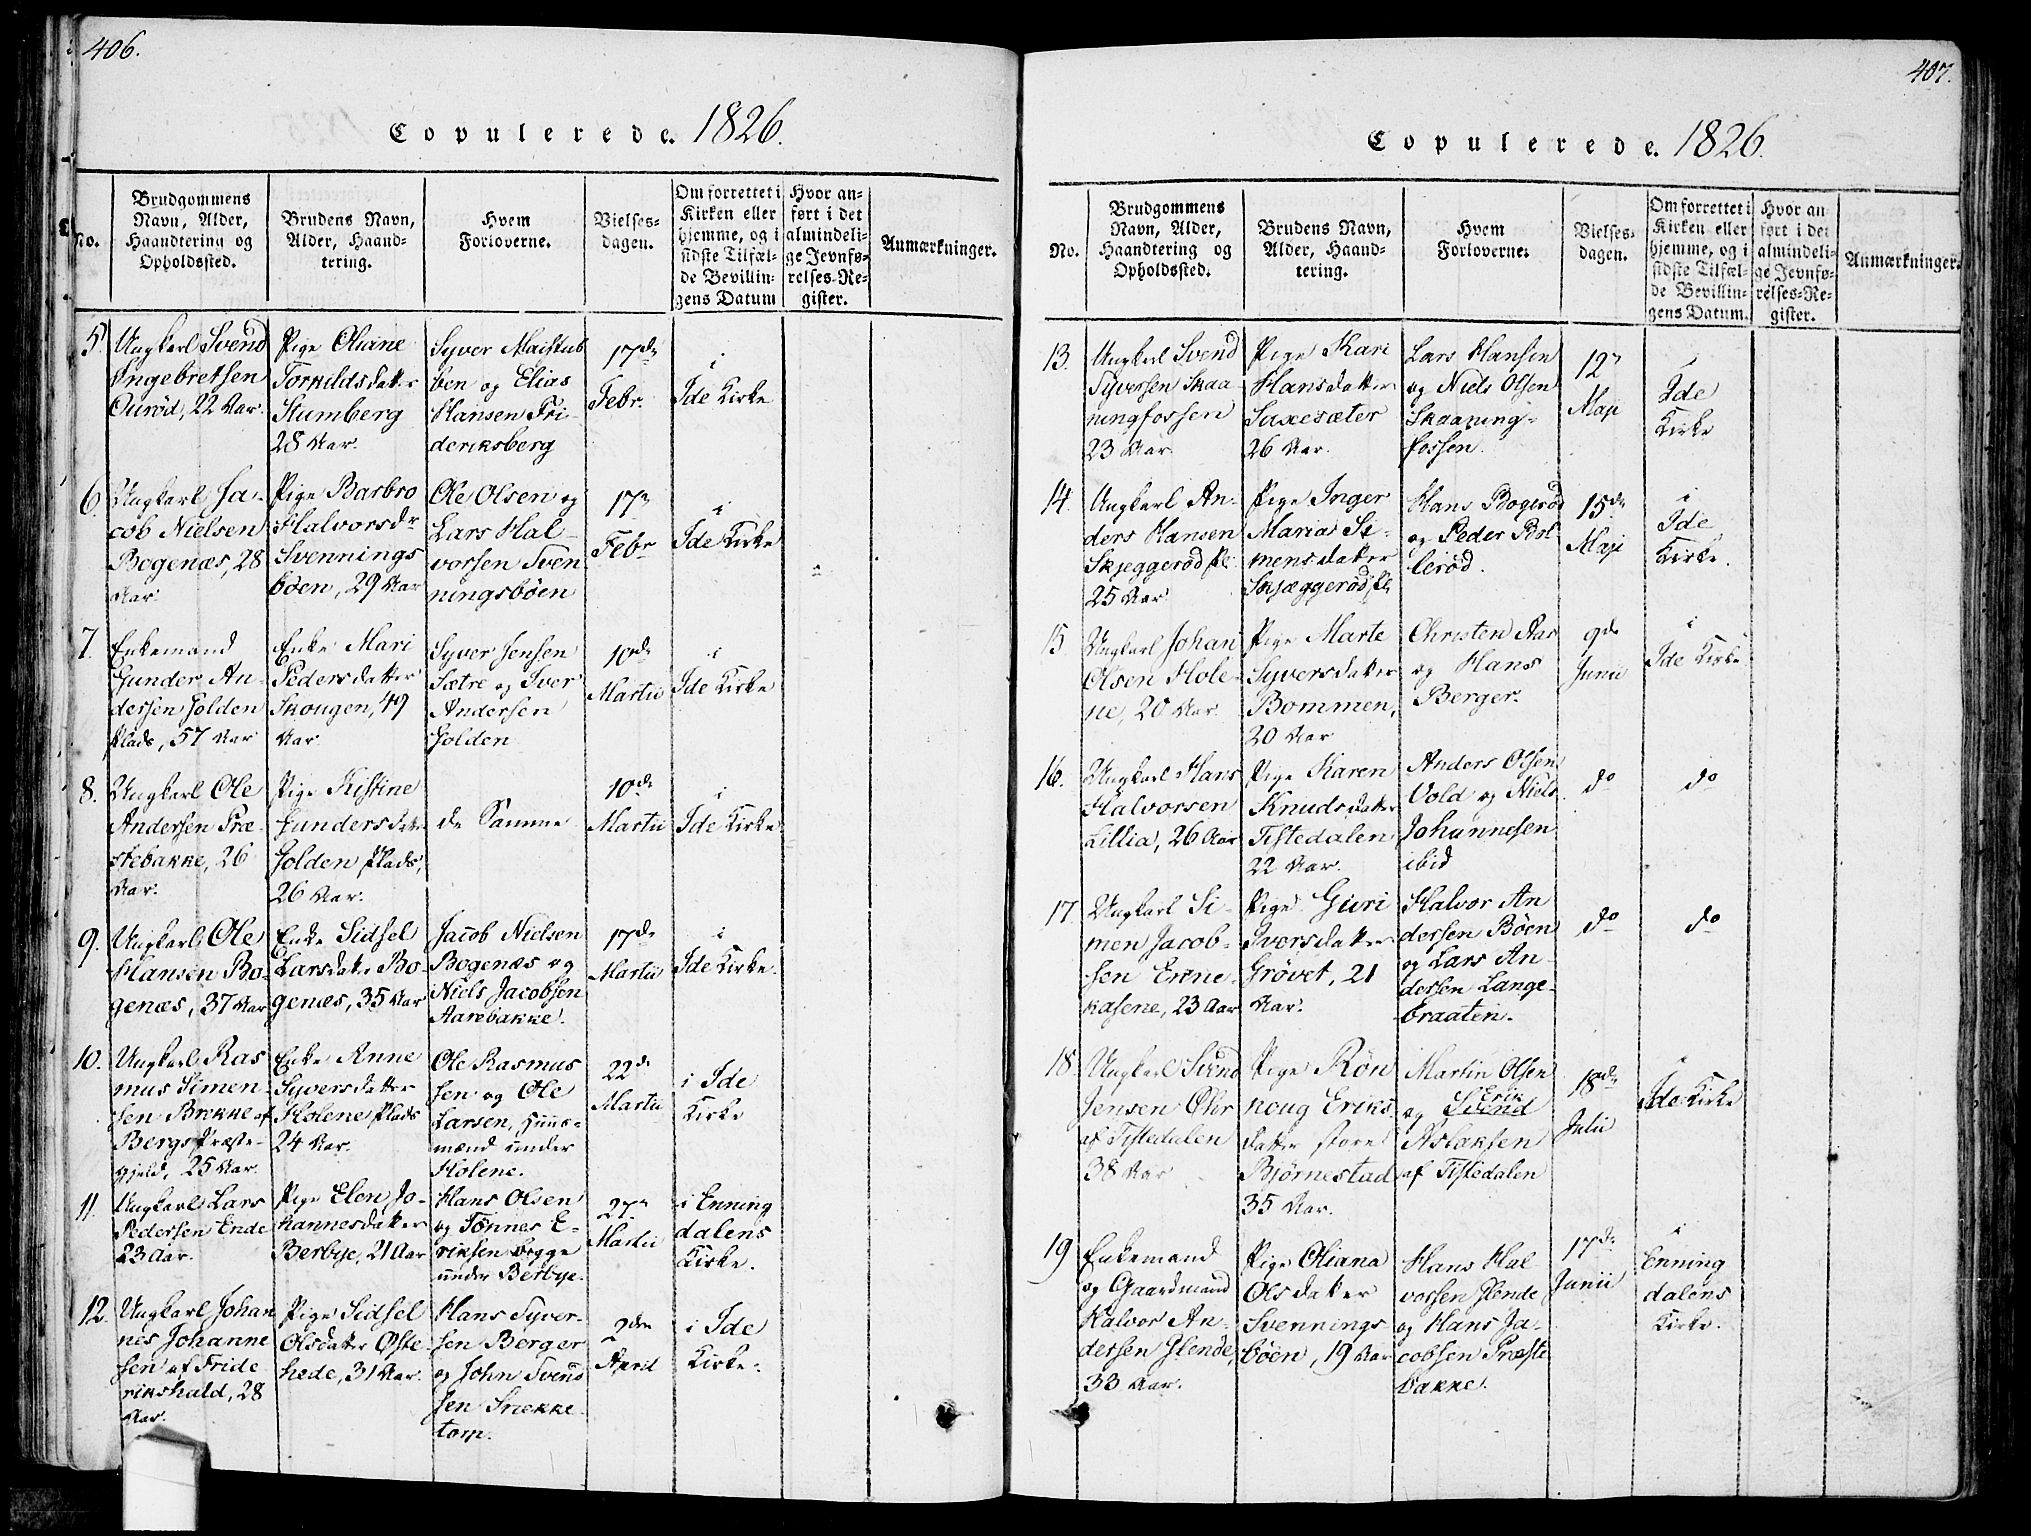 406.
Copulerede. 1826.
No.
Brudgommens
Navn, Alder,
Haandtering og
Opholdssted.
Brudens Navn,
Alder, Haand-
tering.
Hvem
Forloverne.
Vielses-
dagen.
Om forrettet i
Kirken eller
hjemme, og i
sidste Tilfæl-
de Bevillin-
gens Datum
Hvor an-
ført i det
almindeli-
ge Jevnfø-
relses-Re-
gister.
Anmærkninger.
5.
Ungkarl Svend
Ingebretsen
Ourød, 22 Aar.
Pige Oliane
Torkildsdatter
Stumberg
28 Aar.
Syver Maistub
ben og Elias
Hansen Fri-
deriksberg
17de
Febr.
i
Ide Kirke
6.
Ungkarl Ja-
cob Nielsen
Bogenæs, 28
Aar.
Pige Barbro
Halvorsdr
Svennings
böen, 29 Aar
Ole Olsen og
Lars Hal-
vorsen Sven
ningsböen
17de
Febr
i
Ide Kirke
7.
Enkemand
Gunder An-
dersen Holden
Plads, 57 Aar
Enke Mari
Pedersdatter
Skougen, 49
Aar.
Syver Jensen
Sætre og Iver
Andersen
Holden
10de
Martii
i
Ide Kirke
8.
Ungkarl Ole
Andersen Præ-
stebakke, 26
Aar.
Pige Kistine
Gundersdatr
Holden Plads,
26 Aar.
de Samme
10de
Martii
i
Ide Kirke
9.
Ungkarl Ole
Hansen Bo-
genæs, 37 Aar
Enke Sidsel
Larsdatter Bo-
genæs, 35 Aar
Jacob Nielsen
Bogenæs og
Niels Jacobsen
Aarebakke.
17de
Martii
i
Ide Kirke.
10.
Ungkarl Ras
mus Simen-
sen Brekke af
Bergs Præste-
gjeld, 25 Aar.
Enke Anne
Syversdatter
Holene Plads
24 Aar.
Ole Rasmus
sen og Ole
Larsen, Huus-
mænd under
Holene.
22de
Martii
i Ide
Kirke
11.
Ungkarl Lars
Pedersen Ende
23 Aar.
Pige Elen Jo-
hannesdatter
Berbye, 21 Aar
Hans Olsen
og Tønnes E-
riksen begge
under Berbye.
27de
Martii
i Enning
dalens
Kirke.
12.
Ungkarl Johan
nes Johanne
sen af Fride
rikshald, 28
Aar.
Pige Sidsel
Olsdatter Øste
hede, 31 Aar.
Hans Syver-
sen Berger
og John Svend
sen Snekke-
torp.
2den
April
i Ide
Kirke.
407.
Copulerede. 1826.
No.
Brudgommens
Navn, Alder,
Haandtering og
Opholdssted.
Brudens Navn,
Alder, Haand-
tering.
Hvem
Forloverne.
Vielses-
dagen.
Om forrettet i
Kirken eller
hjemme, og i
sidste Tilfæl-
de Bevillin-
gens Datum.
Hvor an
ført i det
almindeli-
ge Jevnfø-
relses-Re-
gister.
Anmærkninger.
13.
Ungkarl Svend
Syversen Skaa
ningfossen
23 Aar.
Pige Kari
Hansdatter
Saxesæter
26 Aar.
Lars Hansen
og Niels Olsen
Skaaning-
fossen.
12te
Maji
i
Ide
Kirke
14.
Ungkarl An-
ders Hansen
Skjeggerød Pl:
25 Aar.
Pige Inger
Maria Si-
mensdatter
Skjæggerød Pl
Hans Bogerød
og Peder Bol-
lerød.
15de
Maji
i
Ide
Kirke.
15.
Ungkarl Johan
Olsen Hole-
ne, 20 Aar
Pige Marte
Syversdatter
Bommen,
20 Aar
Christen Aar
og Hans
Berger.
9de
Junii
i
Ide Kirke
16.
Ungkarl Hans
Halvorsen
Lillia, 26 Aar
Pige Karen
Knudsdatter
Tistedalen,
22 Aar.
Anders Olsen
Vold og Niels
Johannesen
ibid
do
do
17
Ungkarl Si-
men Jacob-
sen Enne-
kasene, 23 Aar
Pige Guri
Iversdatter
Grövet, 21
Aar.
Halvor An
dersen Böen
og Lars An-
dersen Lange-
braaten.
do
do
18.
Ungkarl Svend
Jensen Øhr
af Tistedalen
38 Aar
Pige Røn
noug Eriks
datter store
Bjørnestad
35 Aar.
Martin Olsen
Erik
og Svend
Aslaksen
af Tistedalen
18de
Julii
i
Ide Kirke
19
Enkemand
og Gaardmand
Halvor An-
dersen Hlende,
33 Aar.
Pige Oliana
Olsdatter
Svennings
böen, 19 Aar
Hans Hal
vorsen Hlende
og Hans Ja-
cobsen Præste
bakke.
17de
Junii
i
Enning
dalens
Kirke.